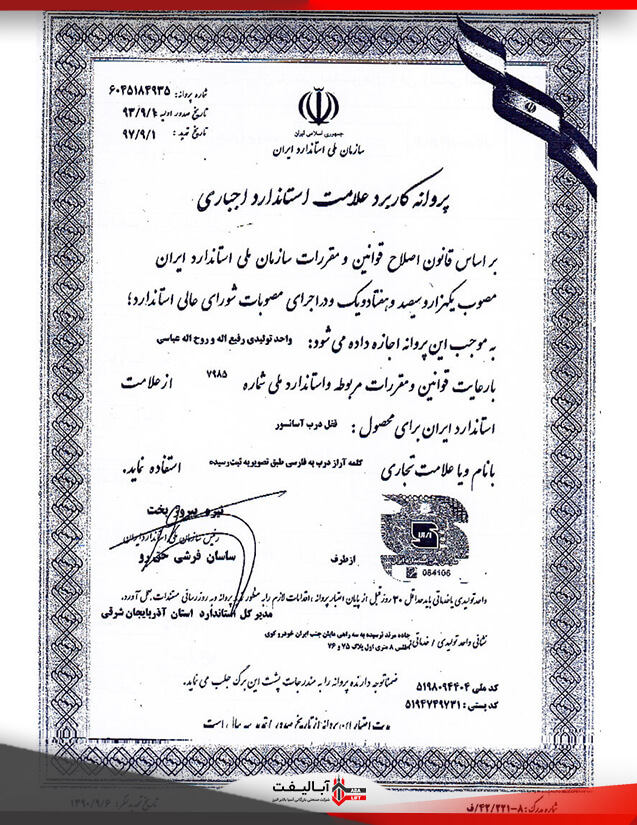 شماره پروانه: ۶۰۴۵۱۸۴۹۳۵
تاریخ صدور اولیه: ۹۳/۹/۱
تاریخ تمدید: ۹۷/۹/۱
جمهوری اسلامی ایران
سازمان ملی استاندارد ایران
پروانه کاربرد علامت استاندارد اجباری
بر اساس قانون اصلاح قوانین و مقررات سازمان ملی استاندارد ایران
مصوب یکهزار و سیصد و هفتاد و یک و در اجرای مصوبات شورای عالی استاندارد؛
به موجب این پروانه اجازه داده می شود: واحد تولیدی رفیع اله و روح اله عباسی
با رعایت قوانین و مقررات مربوطه و استاندارد ملی شماره ۷۹۸۵ از علامت
استاندارد ایران برای محصول: قفل درب آسانسور
با نام و یا علامت تجاری کلمه آراز درب به فارسی طبق تصویر به ثبت رسیده استفاده نماید.
نیره پیروز بخت
رئیس سازمان ملی استاندارد ایران
ساسان فرشی حق رو
از طرف
084106
واحد تولیدی یا خدماتی باید حداقل ۳۰ روز قبل از پایان اعتبار پروانه، اقدامات لازم را به منظور تمدید پروانه و به روز رسانی مستندات بعمل آورد.
مدیر کل استاندارد استان آذربایجان شرقی
نشانی واحد تولیدی / خدماتی: جاده مرند نرسیده به سه راهی مایان جنب ایران خودرو کوی
اطلس ۸ متری اول پلاک ۷۵ و ۷۶
ضمنا توجه دارنده پروانه را به مندرجات پشت این برگ جلب می نماید.
کد ملی ۵۱۹۸۰۹۴۴۰۴
کد پستی: ۵۱۹۴۷۴۹۷۳۱
مدت اعتبار این پروانه از تاریخ صدور / تمدید سه سال است
آبالیفت
ABA LIFT
شماره مدرک: ۸-۴۲/۲۲۱/ف
تاریخ تجدید نظر: ۱۳۹۰/۹/۶